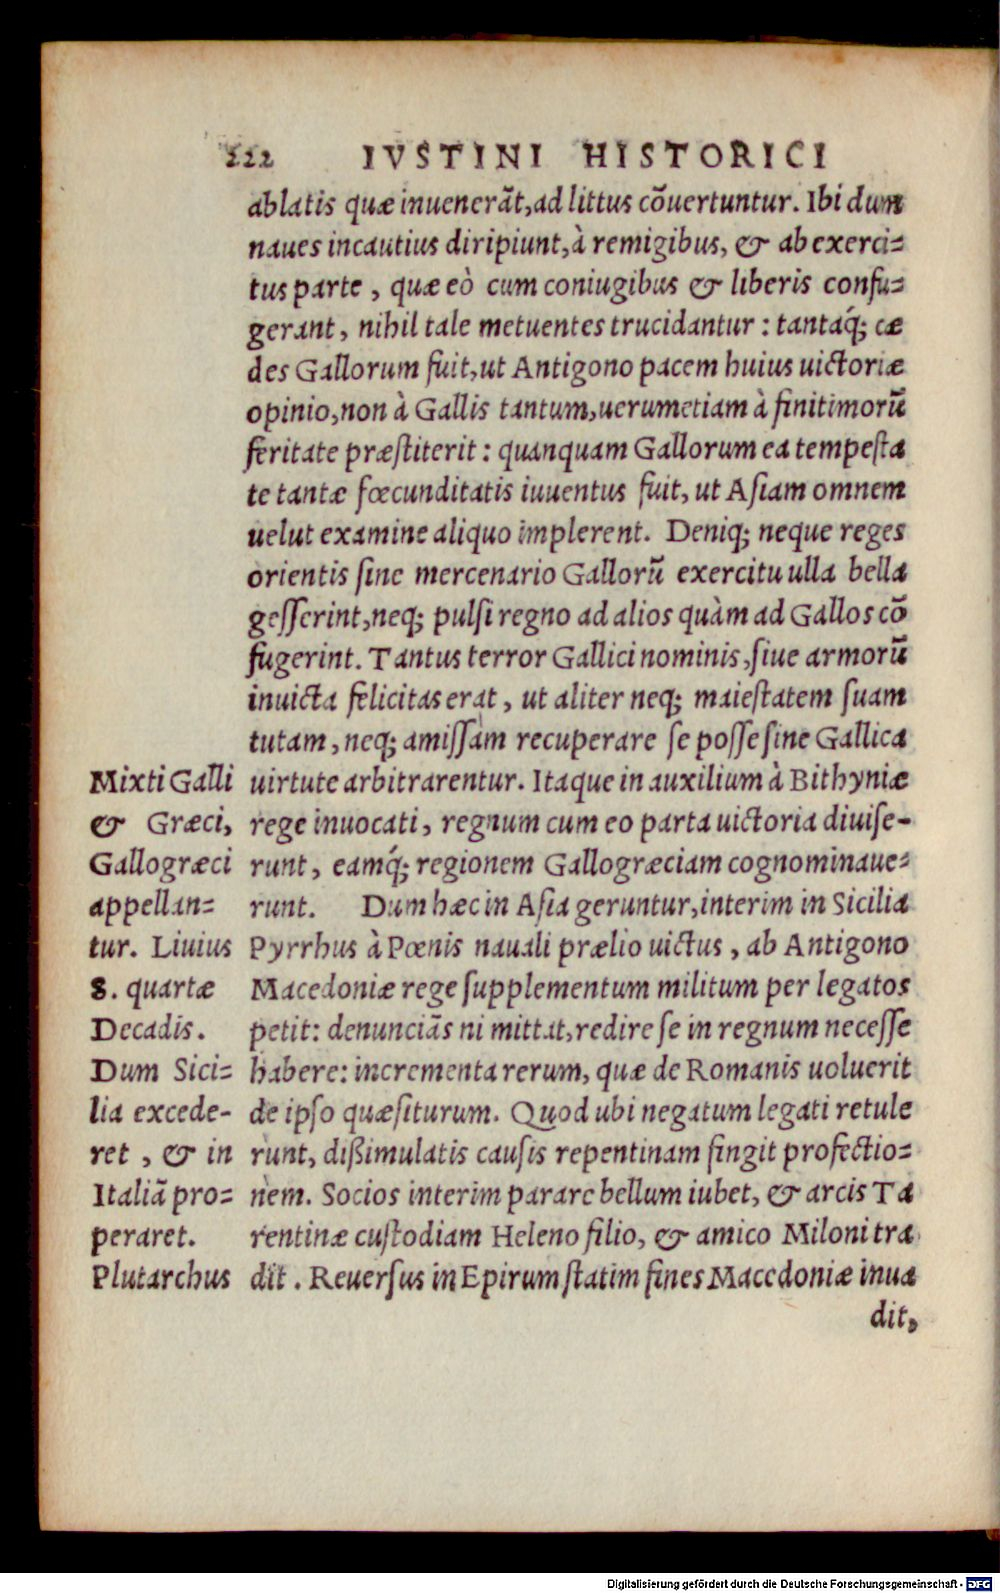 222 IVSTINI HISTORICI
ablatis quæ inuenerāt, ad littus cōuertuntur. Ibi dum
naues incautius diripiunt, à remigibus, & ab exerci-
tus parte, quæ eò cum coniugibus & liberis confu-
gerant, nihil tale metuentes trucidantur: tantaq́; cæ
des Gallorum fuit, ut Antigono pacem huius uictoriæ
opinio, non à Gallis tantum, uerumetiam à finitimorū
feritate præstiterit: quanquam Gallorum ea tempesta
te tantæ fœcunditatis iuuentus fuit, ut Asiam omnem
uelut examine aliquo implerent. Deniq; neque reges
orientis sine mercenario Gallorū exercitu ulla bella
gesserint, neq; pulsi regno ad alios quàm ad Gallos cō
fugerint. Tantus terror Gallici nominis, siue armorū
inuicta felicitas erat, ut aliter neq; maiestatem suam
tutam, neq; amissam recuperare se posse sine Gallica
uirtute arbitrarentur. Itaque in auxilium à Bithyniæ
rege inuocati, regnum cum eo parta uictoria diuise-
runt, eamq́; regionem Gallogræciam cognominaue-
runt. Dum hæc in Asia geruntur, interim in Sicilia
Pyrrhus à Pœnis nauali prælio uictus, ab Antigono
Macedoniæ rege supplementum militum per legatos
petit: denunciās ni mittat, redire se in regnum necesse
habere: incrementa rerum, quæ de Romanis uoluerit
de ipso quæsiturum. Quod ubi negatum legati retule
runt, dißimulatis causis repentinam fingit profectio-
nem. Socios interim parare bellum iubet, & arcis Ta
rentinæ custodiam Heleno filio, & amico Miloni tra
dit. Reuersus in Epirum statim fines Macedoniæ inua
dit,
Mixti Galli
& Græci,
Gallogræci
appellan-
tur. Liuius
8. quartæ
Decadis.
Dum Sici-
lia excede-
ret, & in
Italiā pro-
peraret.
Plutarchus
Digitalisierung gefördert durch die Deutsche Forschungsgemeinschaft - DFG